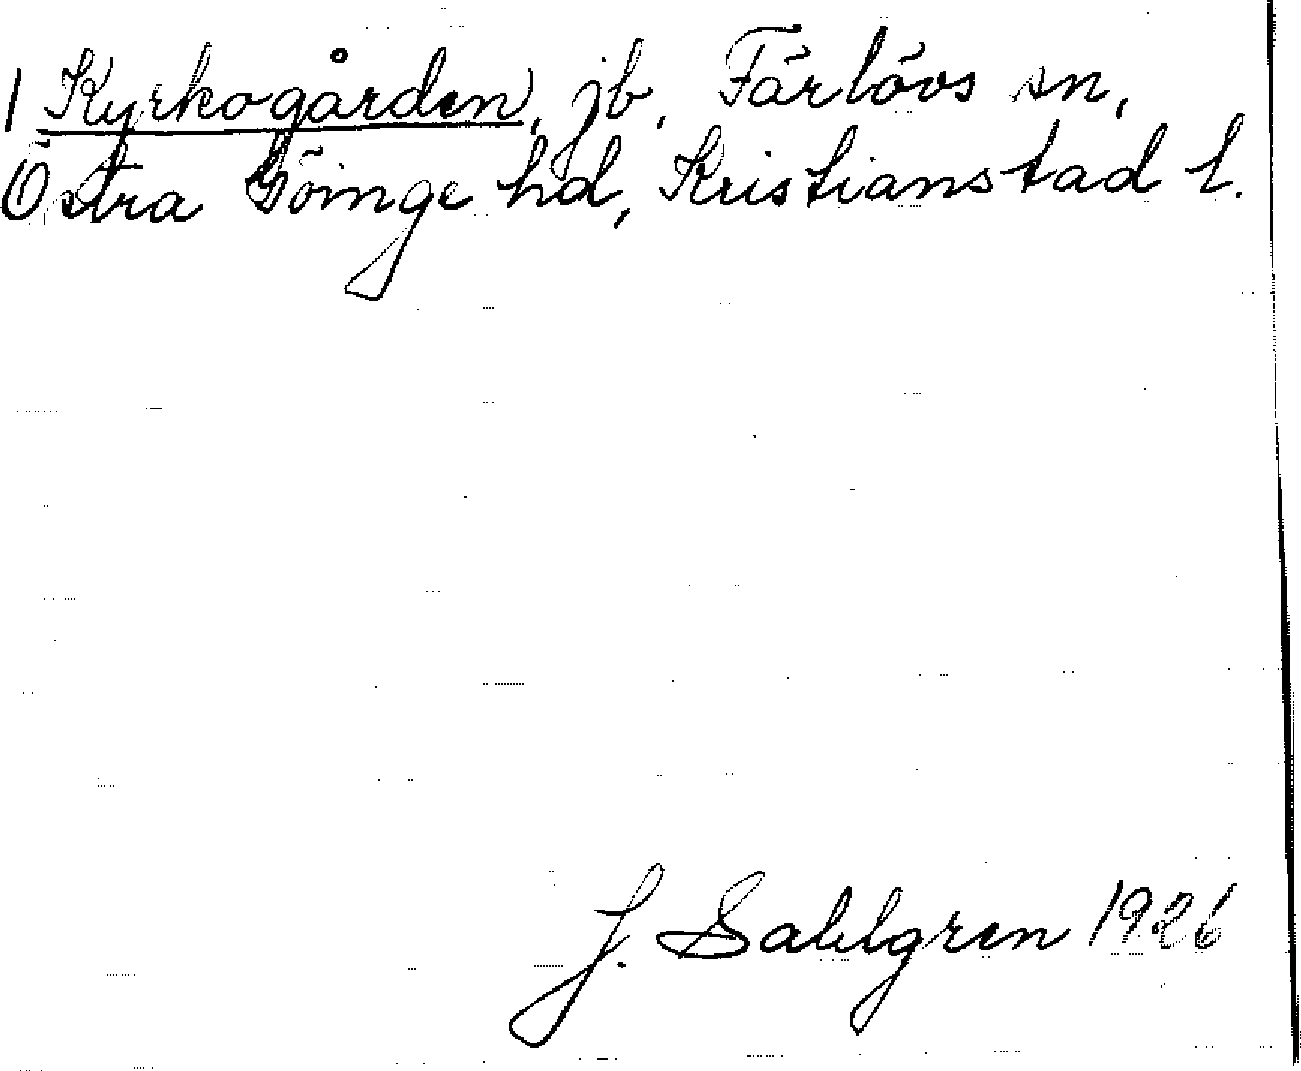 1 Kyrkogården, jb, Färlövs sn,
Östra Göinge hd, Kristianstad l.
J. Sahlgren 1926